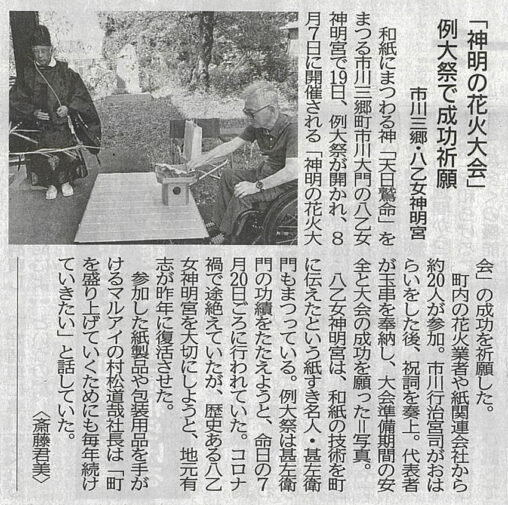 「神明の花火大会」
例大祭で成功祈願
市川三郷・八乙女神明宮
和紙にまつわる神「天日鷲命」を
まつる市川三郷町市川大門の八乙女
神明宮で19日、例大祭が開かれ、8
月7日に開催される「神明の花火大
会」の成功を祈願した。
町内の花火業者や紙関連会社から
約20人が参加。市川行治宮司がおは
らいをした後、祝詞を奏上。代表者
が玉串を奉納し、大会準備期間の安
全と大会の成功を願った＝写真。
八乙女神明宮は、和紙の技術を町
に伝えたという紙すき名人・甚左衛
門もまつっている。例大祭は甚左衛
門の功績をたたえようと、命日の7
月20日ごろに行われていた。コロナ
禍で途絶えていたが、歴史ある八乙
女神明宮を大切にしようと、地元有
志が昨年に復活させた。
参加した紙製品や包装用品を手が
けるマルアイの村松道哉社長は「町
を盛り上げていくためにも毎年続け
ていきたい」と話していた。
〈斎藤君美〉